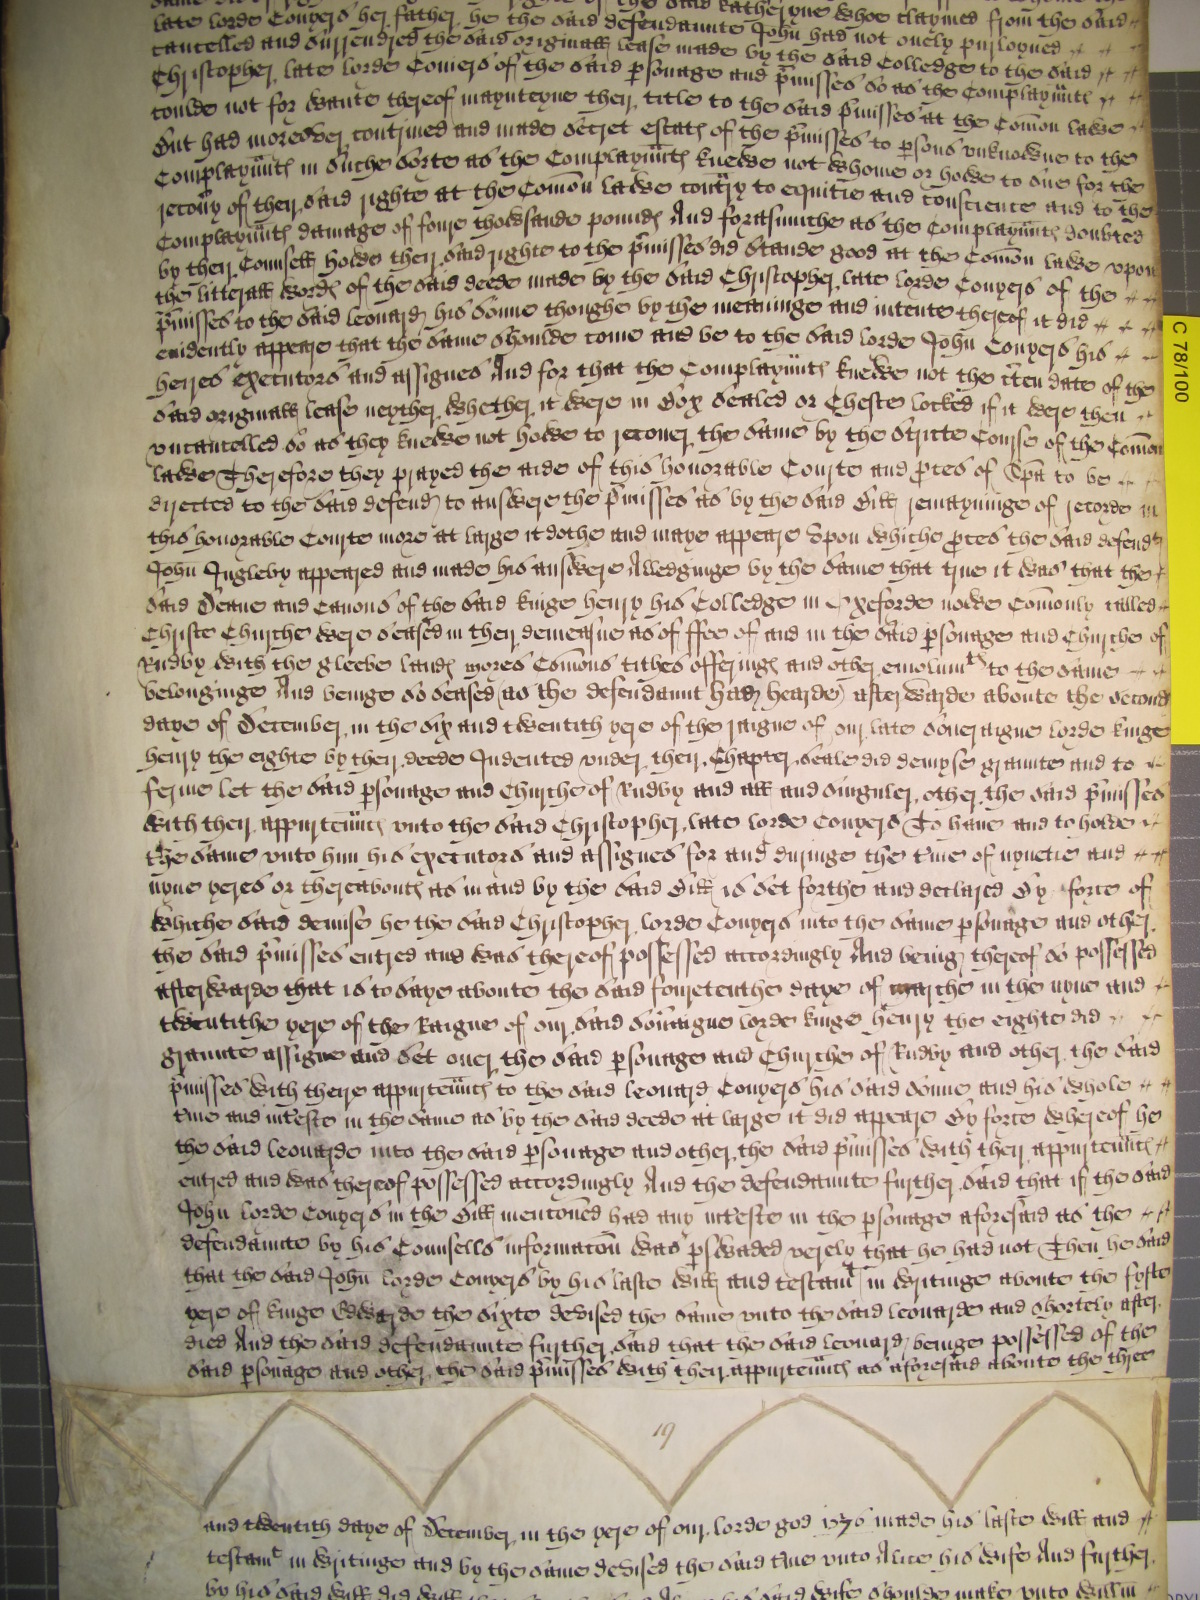 the said Katheryne whoe claymed from the said
late lorde Conyers her father, he the said defendaunte John had not onely purloyned
cancelled and surrendred the said originall lease made by the said Colledge to the said
Christopher late lorde Coniers of the said p̱sonage and p̄misses so as the Complayn̄ntę
coulde not for wante thereof maynteyne their title to the said p̄misses at the Com̄on lawe
But had moreover contrived and made secret estatę of the p̄misses to p̱sons unknowne to the
Complayn̄ntę in suche sorte as the Complayn̄ntę knewe not whome or howe to sue for the
recov̄y of their said righte at the Com̄on lawe cont̄ry to equitie and conscience and to the
Complayn̄ntę damage of foure thowsande poundę And forasmuche as the Complayn̄ntę doubted
by their Counsell howe their said righte to the p̄misses did stande good at the Com̄on lawe upon
the litterall wordę of the said deede made by the said Christopher late lorde Conyers of the
p̄misses to the said leonard his sonne thoughe by the meaninge and intente thereof it did
evidently appeare that the same shoulde come and be to the said lorde John Conyers his
heires executors and assignes And for that the Complayn̄ntę knewe not the c̄ten date of the
said originall lease neyther whether it were in Box sealed or Cheste locked if it were then
uncancelled so as they knewe not howe to recover the same by the stricte Course of the Com̄on
lawe Therefore they prayed the aide of this honorable Courte and p̱ces of Sp̄a to be
directed to the said defend to answere the p̄misses as by the said Bill remayninge of recorde in
this honorable Courte more at large it dothe and maye appeare Upon whiche p̱ces the said defendt
John Ingleby appeared and made his answere Alledginge by the same that true it was that the
said Deane and Canons of the said kinge henry his Colledge in Oxeforde nowe Com̄only called
Christe Churche were seased in their demeasne as of ffee of and in the said p̱sonage and Churche of
Rudby with the gleebe landę mores Com̄ons tithes offeringę and other emolumts to the same
belonginge And beinge so seased (as the defendaunt had hearde) afterwarde aboute the second
daye of December in the six and twentith yere of the raigne of our late soveraigne lorde kinge
henry the eighte by their deede Indented under their Chapter seale did demyse graunte and to
ferme let the said p̱sonage and Churche of Rudby and all and singuler other the said p̄misses
with their appurten̄ncę unto the said Christopher late lorde Conyers To have and to holde
the same unto him his executors and assignes for and duringe the t̄me of nynetie and
nyne yeres or thereaboutę as in and by the said Bill is set forthe and declared By force of
whiche said demise he the said Christopher lorde Conyers into the same p̱sonage and other
the said p̄misses entred and was thereof possessed accordingly And being thereof so possessed
afterwarde that is to saye aboute the said fouretenthe daye of marche in the nyne and
twentithe yere of the Raigne of our said sov̄aigne lorde kinge henry the eighte did
graunte assigne and set over the said p̱sonage and Churche of Rudby and other the said
p̄misses with there appurten̄ncę to the said leonard Conyers his said sonne and his whole
t̄me and int̄este in the same as by the said deede at large it did appeare By force whereof he
the said leonarde into the said p̱sonage and other the said p̄misses with their appurten̄ncę
entred and was thereof possessed accordingly And the defendaunte further said that if the said
John lorde Conyers in the Bill mentoned had any int̄este in the p̱sonage aforesaid as the
defendaunte by his Counsells informaton̄ was p̱swaded verely that he had not Then he said
that the said John lorde Conyers by his laste will and testamt in writinge aboute the fyfte
yere of kinge Edwarde the sixte devised the same unto the said leonarde and shortely after
died And the said defendaunte further said that the said leonard beinge possessed of the
said p̱sonage and other the said p̄misses with their appurten̄ncę as aforesaid aboute the three
19
and twentith daye of December in the yere of our lorde god 1576 made his laste will and
testamt in writinge and by the same devised the said t̄me unto Alice his wife And further
by his said will did will that said wife shoulde make unto Willm̄
C 78/100